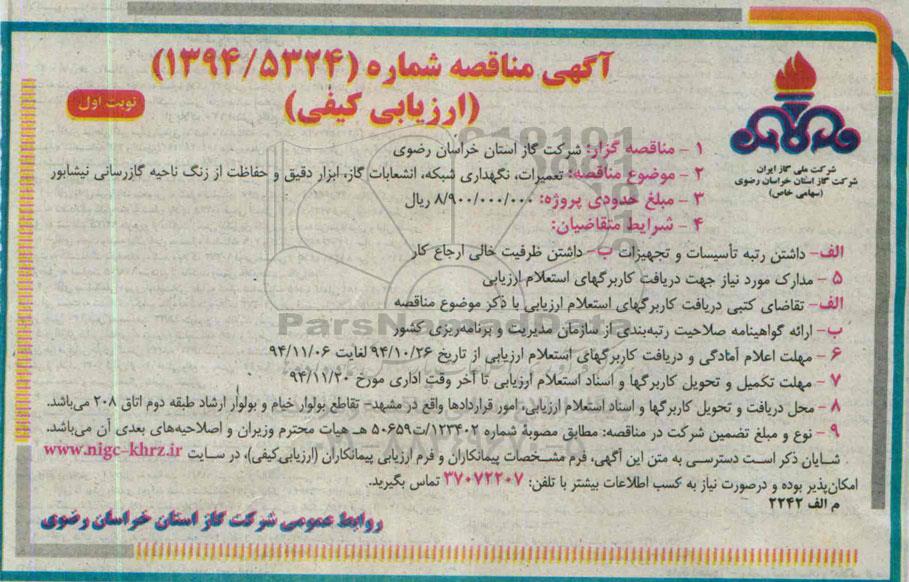 آگهی مناقصه شماره (۱۳۹۴/۵۳۲۴)
(ارزیابی کیفی)
نوبت اول
شرکت ملی گاز ایران
شرکت گاز استان خراسان رضوی
(سهامی خاص)
۱ - مناقصه گزار: شرکت گاز استان خراسان رضوی
۲ - موضوع مناقصه: تعمیرات، نگهداری شبکه، انشعابات گاز، ابزار دقیق و حفاظت از زنگ ناحیه گازرسانی نیشابور
۳ - مبلغ حدودی پروژه: ۸/۹۰۰/۰۰۰/۰۰۰ ریال
۴ - شرایط متقاضیان:
الف- داشتن رتبه تأسیسات و تجهیزات ب- داشتن ظرفیت خالی ارجاع کار
۵ - مدارک مورد نیاز جهت دریافت کاربرگهای استعلام ارزیابی
الف- تقاضای کتبی دریافت کاربرگهای استعلام ارزیابی با ذکر موضوع مناقصه
ب- ارائه گواهینامه صلاحیت رتبه‌بندی از سازمان مدیریت و برنامه‌ریزی کشور
۶ - مهلت اعلام آمادگی و دریافت کاربرگهای استعلام ارزیابی از تاریخ ۹۴/۱۰/۲۶ لغایت ۹۴/۱۱/۰۶
۷ - مهلت تکمیل و تحویل کاربرگها و اسناد استعلام ارزیابی تا آخر وقت اداری مورخ ۹۴/۱۱/۲۰
۸ - محل دریافت و تحویل کاربرگها و اسناد استعلام ارزیابی، امور قراردادها واقع در مشهد- تقاطع بولوار خیام و بولوار ارشاد طبقه دوم اتاق ۲۰۸ می‌باشد.
۹ - نوع و مبلغ تضمین شرکت در مناقصه: مطابق مصوبۀ شماره ۱۲۳۴۰۲/ت۵۰۶۵۹ هـ هیات محترم وزیران و اصلاحیه‌های بعدی آن می‌باشد.
شایان ذکر است دسترسی به متن این آگهی، فرم مشخصات پیمانکاران و فرم ارزیابی پیمانکاران (ارزیابی‌کیفی)، در سایت www.nigc-khrz.ir
امکان‌پذیر بوده و درصورت نیاز به کسب اطلاعات بیشتر با تلفن: ۳۷۰۷۲۲۰۷ تماس بگیرید.
م الف ۲۲۴۲
روابط عمومی شرکت گاز استان خراسان رضوی
ParsNamadData